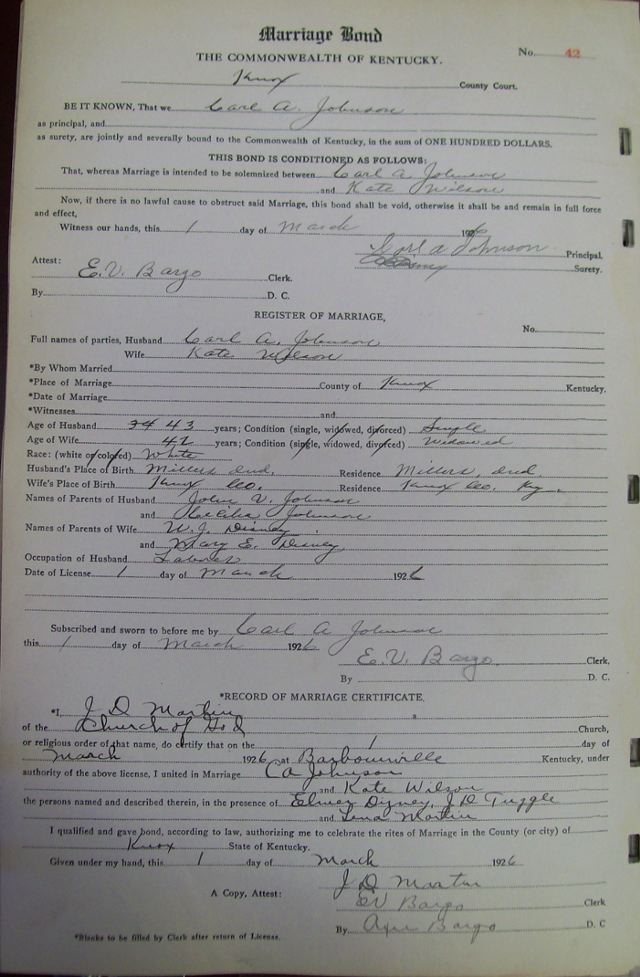 Marriage Bond
No. 42
THE COMMONWEALTH OF KENTUCKY.
Knox County Court.
BE IT KNOWN, That we Carl A. Johnson
as principal, and
as surety, are jointly and severally bound to the Commonwealth of Kentucky, in the sum of ONE HUNDRED DOLLARS.
THIS BOND IS CONDITIONED AS FOLLOWS:
That, whereas Marriage is intended to be solemnized between Carl A Johnson
and Kate Wilson
Now, if there is no lawful cause to obstruct said Marriage, this bond shall be void, otherwise it shall be and remain in full force
and effect,
Witness our hands, this 1 day of March 1926
Carl A Johnson Principal,
Surety.
Attest: E.V. Bargo Clerk.
By D. C.
REGISTER OF MARRIAGE,
No.
Full names of parties, Husband Carl A. Johnson
Wife Kate Wilson
*By Whom Married
*Place of Marriage County of Knox Kentucky.
*Date of Marriage
*Witnesses and
Age of Husband 34 43 years; Condition (single, widowed, divorced) Single
Age of Wife 42 years; Condition (single, widowed, divorced) Widowed
Race: (white or colored) White
Husband's Place of Birth Millers Ind. Residence Millers, Ind.
Wife's Place of Birth Knox Co. Residence Knox Co. Ky.
Names of Parents of Husband John V. Johnson
and Johnson
Names of Parents of Wife W. J. Disney
and Mary E. Disney
Occupation of Husband Laborer
Date of License 1 day of March 1926
Subscribed and sworn to before me by Carl A Johnson
this 1 day of March 1926
E. V. Bargo Clerk,
By D. C.
*RECORD OF MARRIAGE CERTIFICATE,
*I, J D Martin
of the Church of God Church,
or religious order of that name, do certify that on the 1 day of
March 1926 at Barbourville Kentucky, under
authority of the above license, I united in Marriage C A Johnson
and Kate Wilson
the persons named and described therein, in the presence of Elmer Dizney, J D Tuggle
and Martin
I qualified and gave bond, according to law, authorizing me to celebrate the rites of Marriage in the County (or city) of
Knox State of Kentucky.
Given under my hand, this 1 day of March 1926
J D Martin
A Copy, Attest: EV Bargo Clerk
By Bargo D. C
*Blanks to be filled by Clerk after return of License.